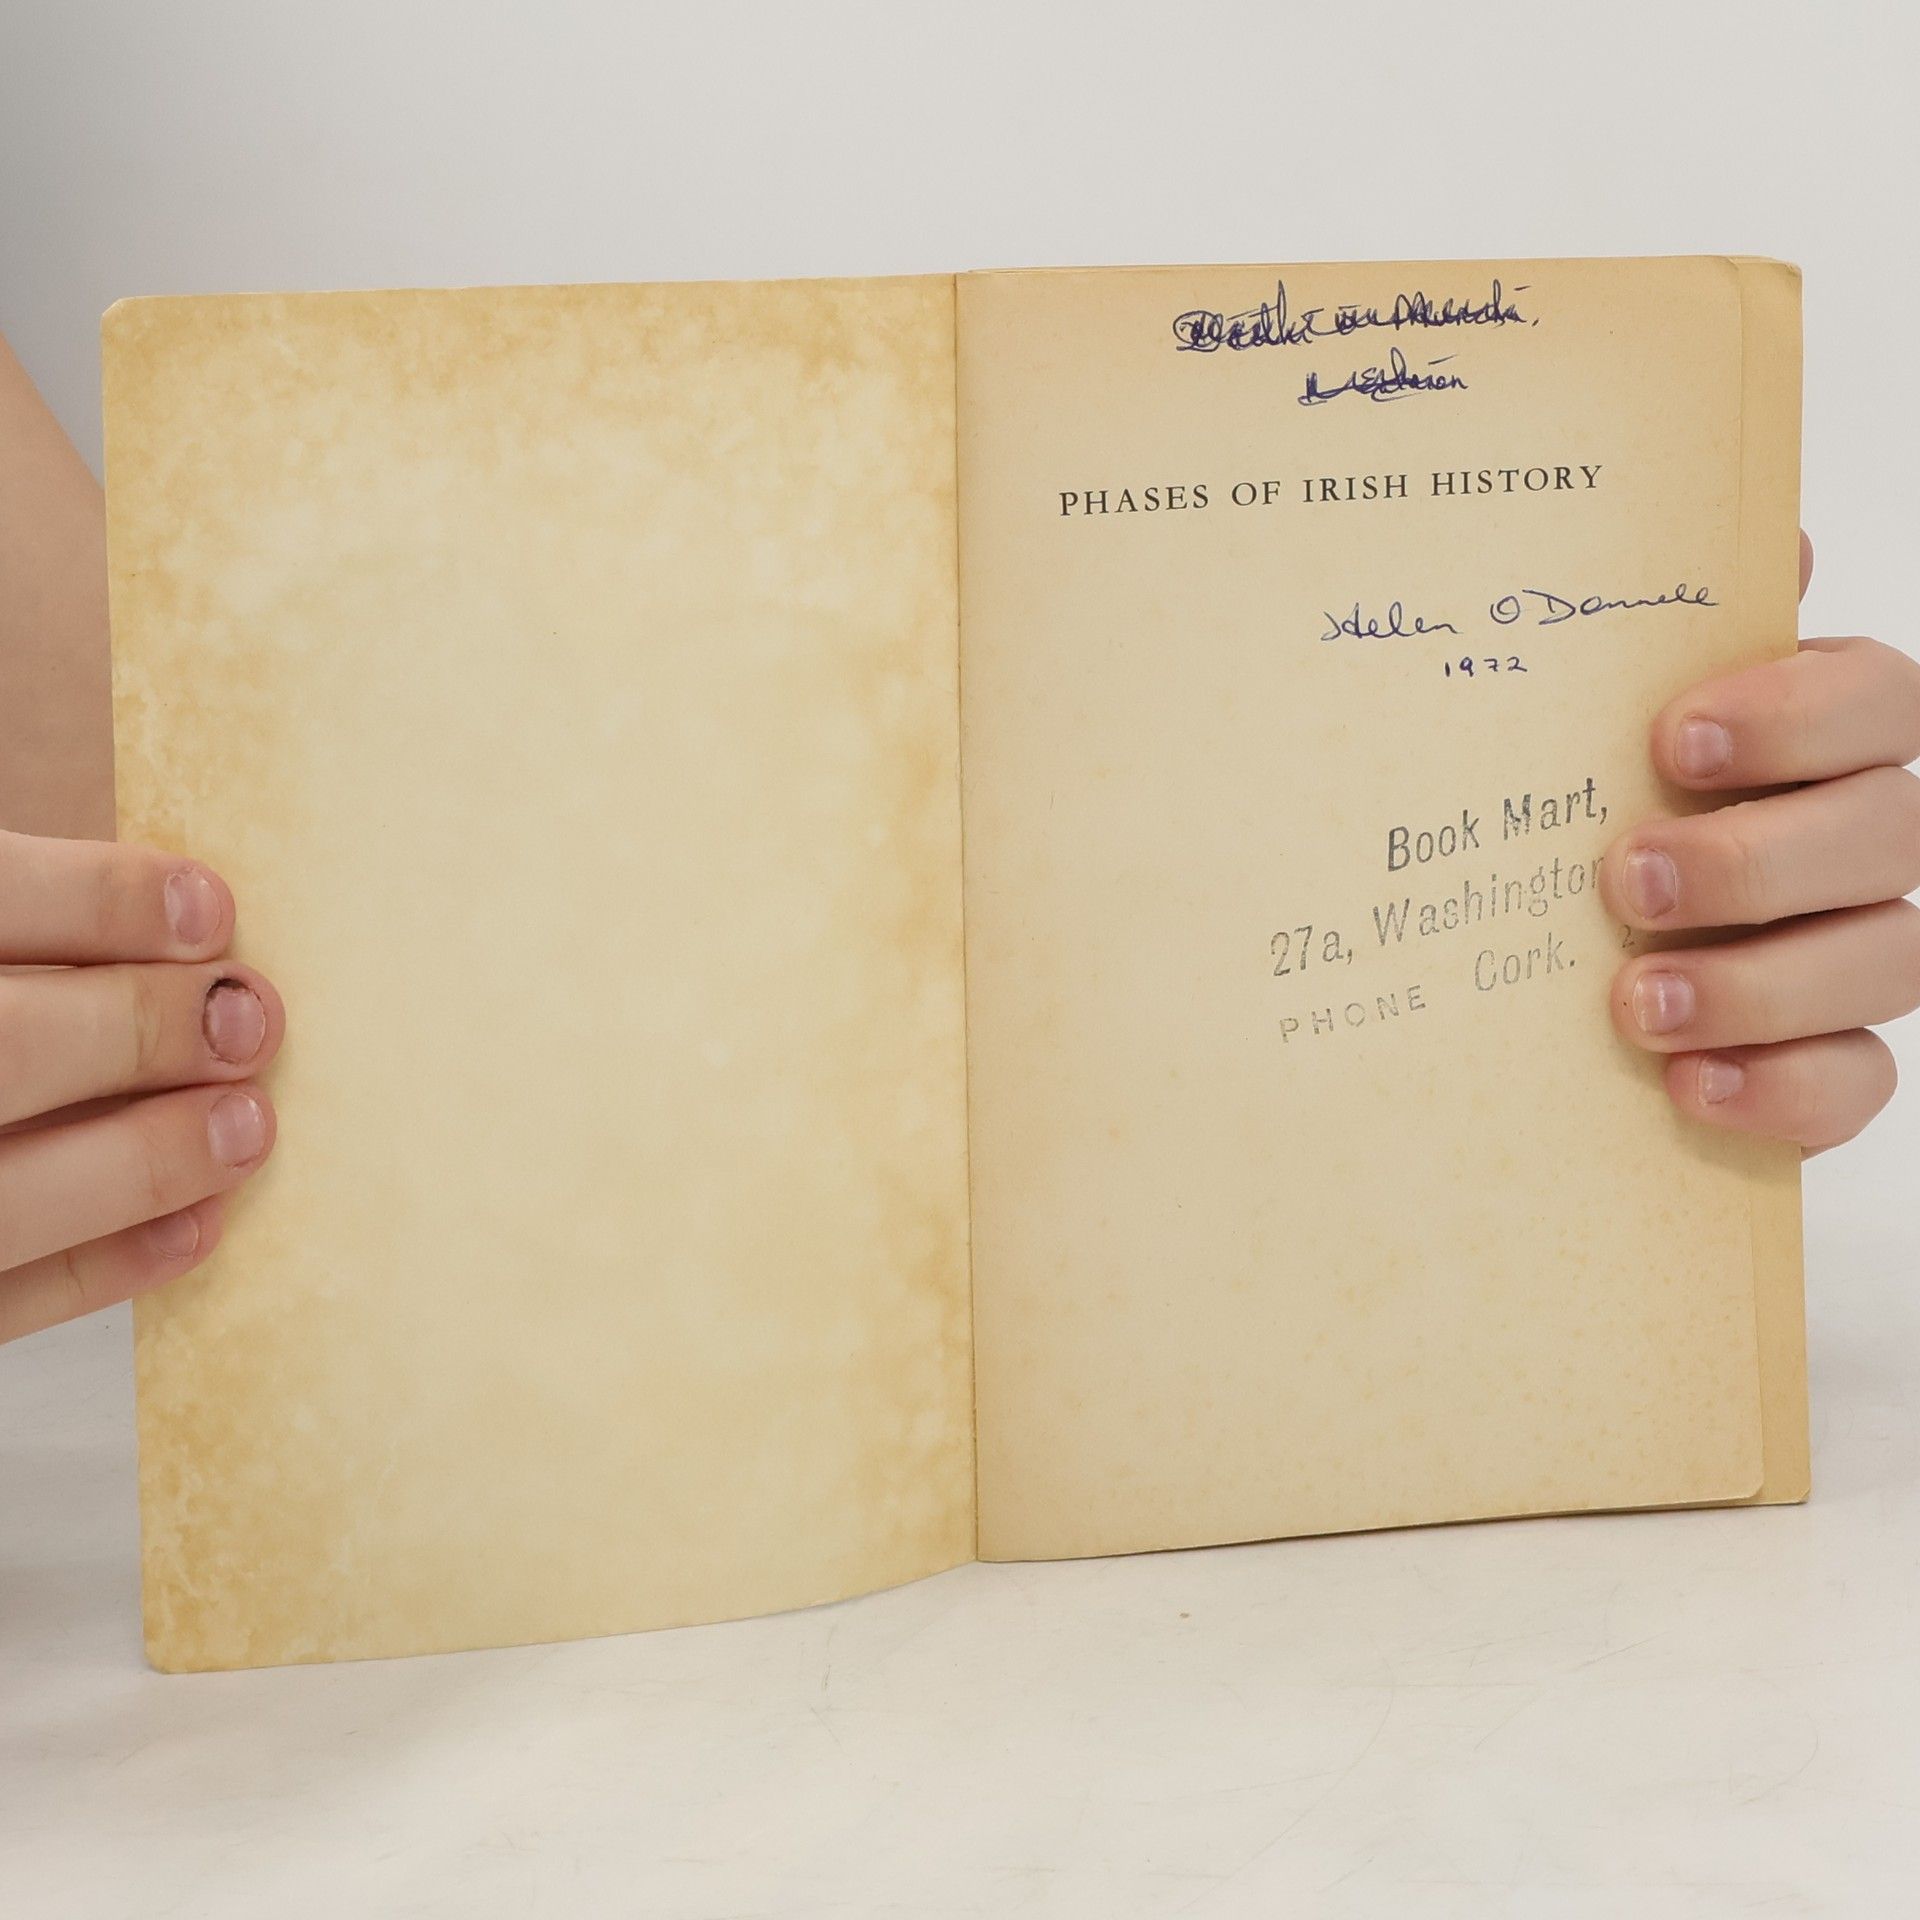 PHASES OF IRISH HISTORY
Helen O'Donnell
1972
Book Mart,
27a, Washington
Cork.
PHONE
2